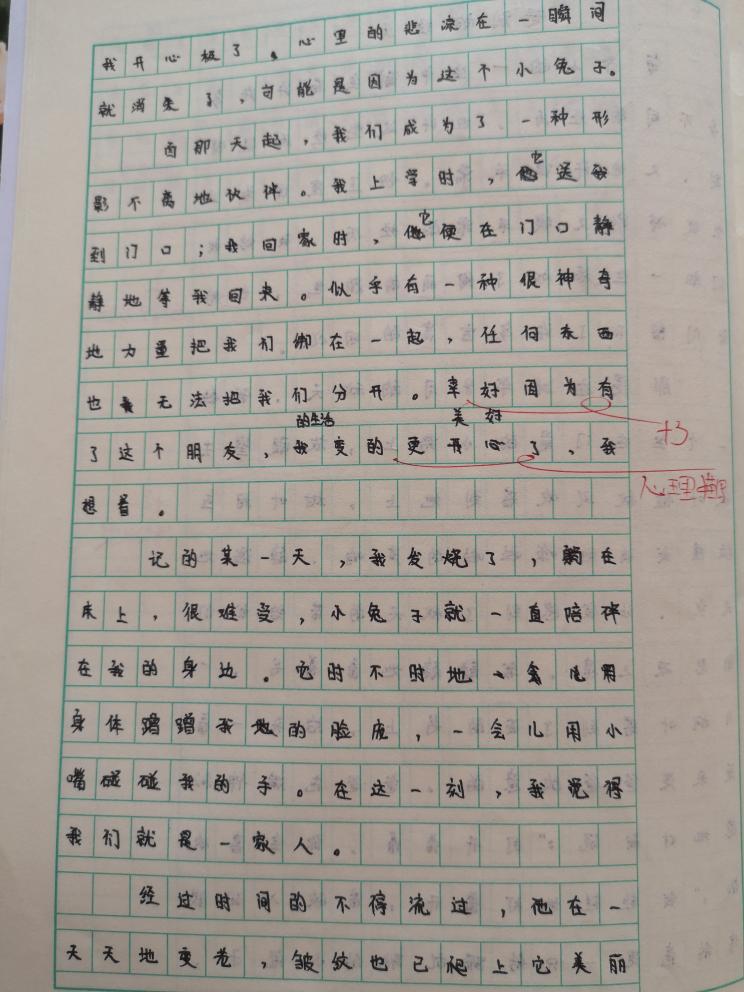 我开心极了。心里的悲凉在一瞬间
就消失了，可能是因为这个小兔子。
自那天起，我们成为了一种形
影不离地伙伴。我上学时，它送我
到门口；我回家时，它便在门口静
静地等我回来。似乎有一种很神奇
地力量把我们绑在一起，任何东西
也无法把我们分开。幸好因为有
+3
的生活 美好
了这个朋友，我变的更开心了，我
心理描写
想着。
记的某一天，我发烧了，躺在
床上，很难受，小兔子就一直陪伴
在我的身边。它时不时地一会儿用
身体蹭蹭我地的脸庞，一会儿用小
嘴碰碰我的手。在这一刻，我觉得
我们就是一家人。
经过时间的不停流过，他在一
天天地变老，皱纹也已爬上它美丽